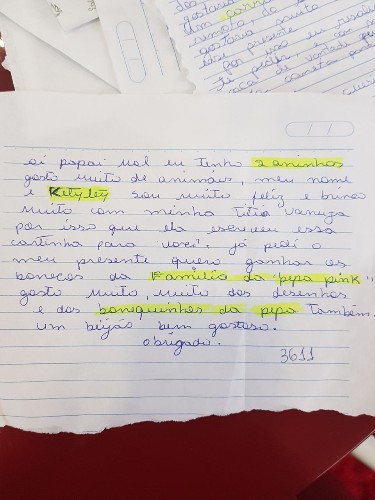 dos
gostaria
um carr
remoto, do
gostaria muito
esse presente
oi papai nol eu tenho 2 aninhos
gosto muito de animais, meu nome
é Kelyley sou muito feliz e brinco
muito com minha titia vaneza
por isso que ela escreveu essa
cartinha para você, já pedi o
meu presente quero ganhar os
bonecos da Familia da "pepa pink",
gosto muito, muito dos desenhos
e dos bonequinhos da pepa também.
um beijão bem gostoso.
obrigado.
3611